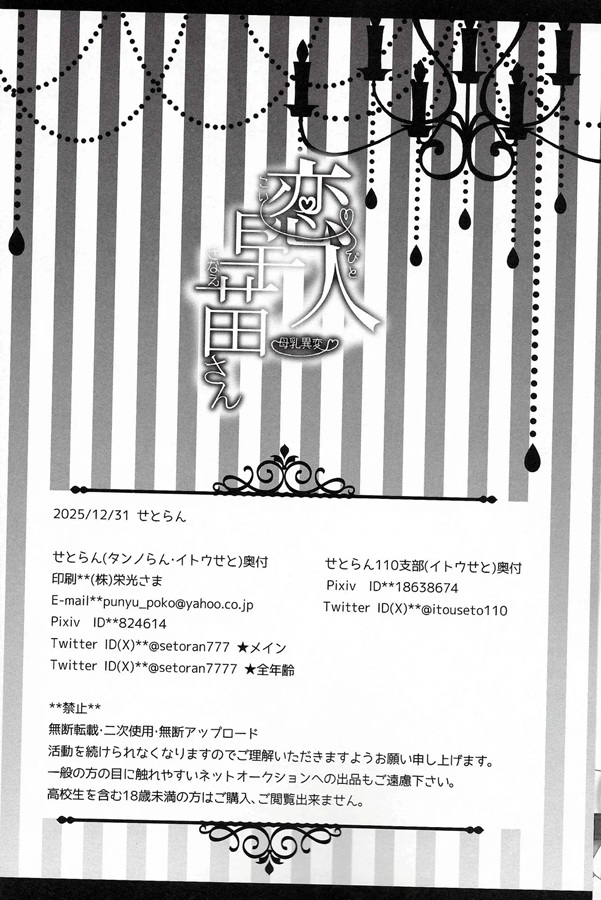 恋人
こいびと
早苗さん
さなえ
母乳異変
2025/12/31 せとらん
せとらん(タンノらん・イトウせと)奥付
印刷**(株)栄光さま
E-mail**punyu_poko@yahoo.co.jp
Pixiv ID**824614
Twitter ID(X)**@setoran777 ★メイン
Twitter ID(X)**@setoran7777 ★全年齢
せとらん110支部(イトウせと)奥付
Pixiv ID**18638674
Twitter ID(X)**@itouseto110
**禁止**
無断転載・二次使用・無断アップロード
活動を続けられなくなりますのでご理解いただきますようお願い申し上げます。
一般の方の目に触れやすいネットオークションへの出品もご遠慮下さい。
高校生を含む18歳未満の方はご購入、ご閲覧出来ません。